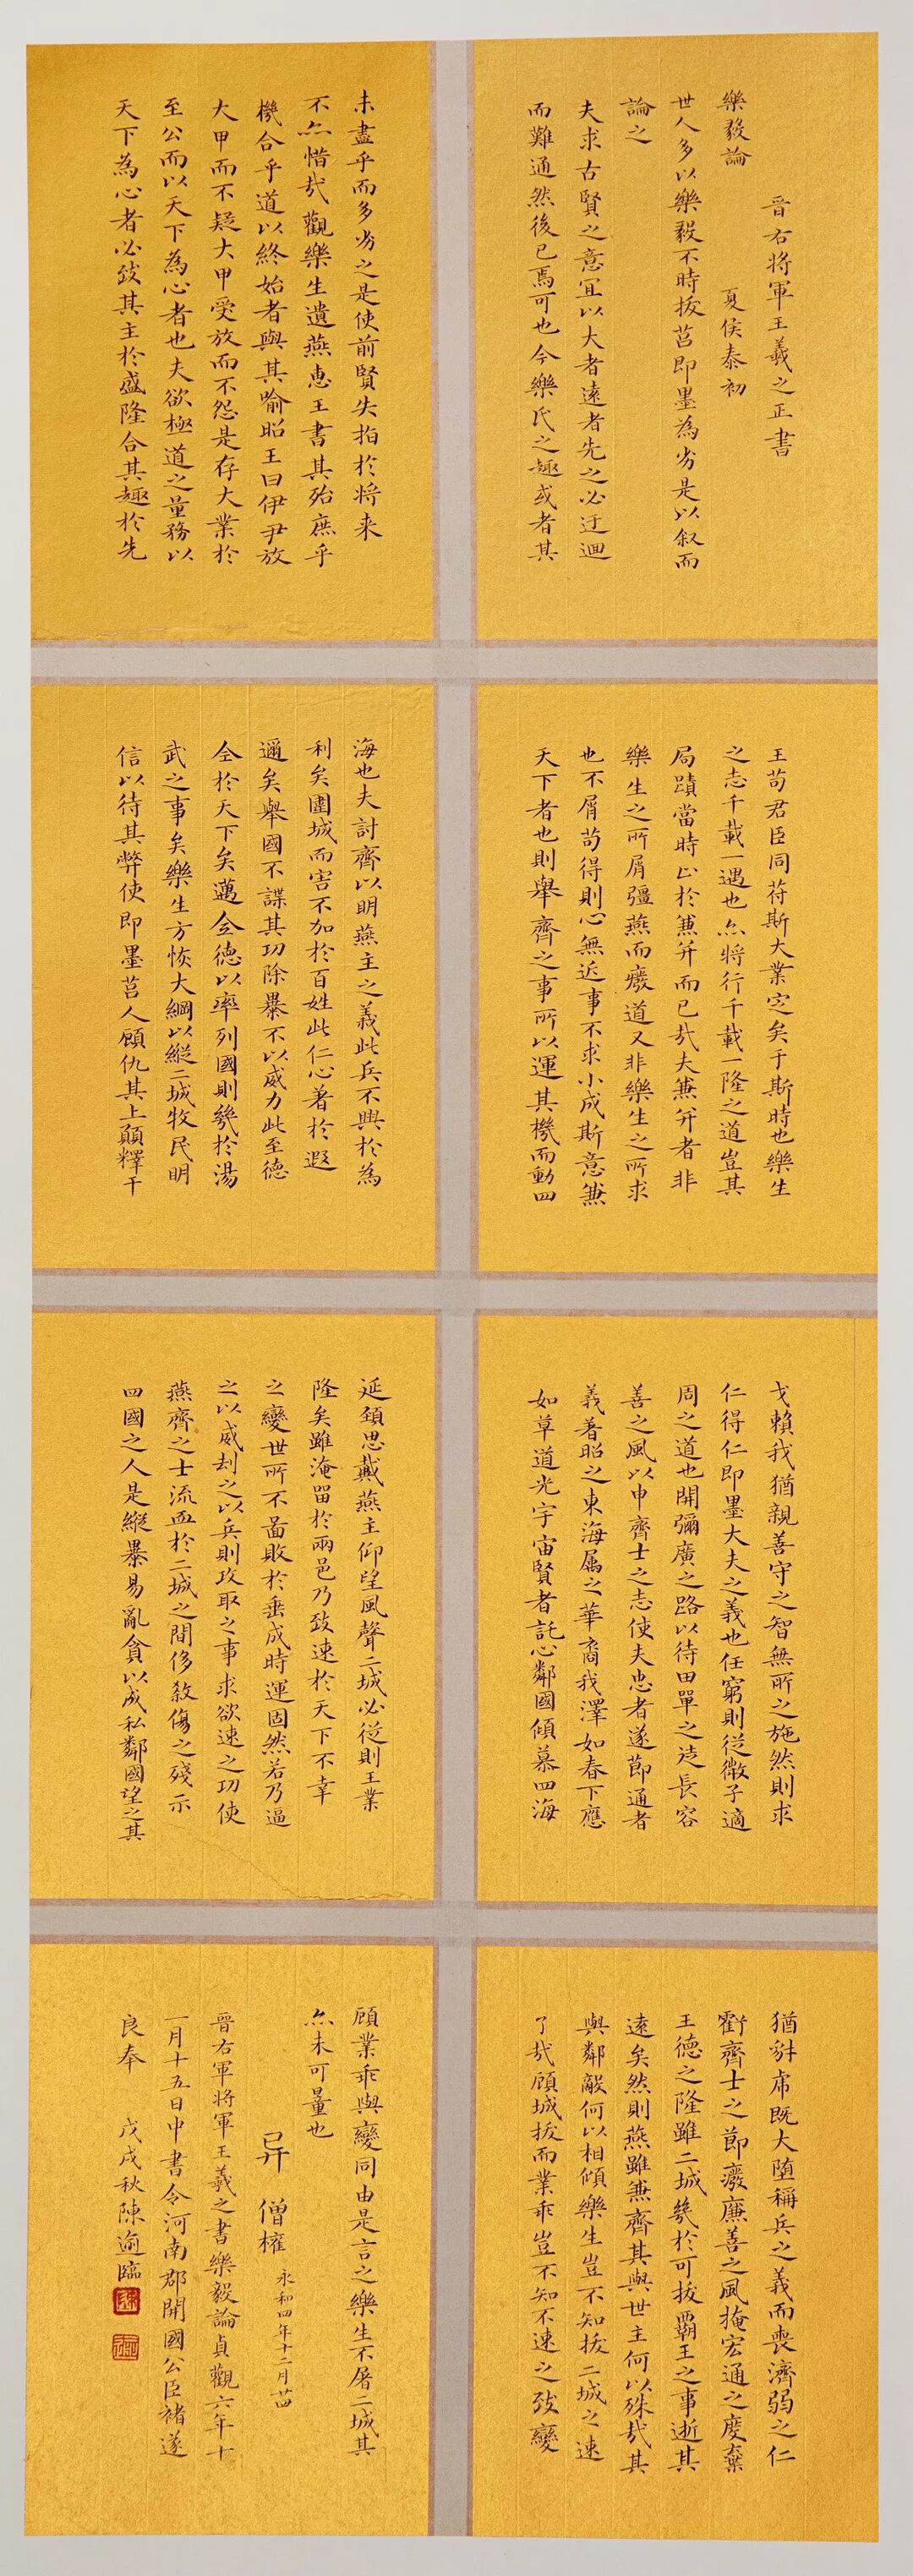 晉右將軍王羲之正書
樂毅論　夏侯泰初
世人多以樂毅不時拔莒即墨為劣是以叙而
論之
夫求古賢之意宜以大者遠者先之必迂迴
而難通然後已焉可也今樂氏之趣或者其
未盡乎而多劣之是使前賢失指於將来
不亦惜哉觀樂生遺燕惠王書其殆庶乎
機合乎道以終始者與其喻昭王曰伊尹放
大甲而不疑大甲受放而不怨是存大業於
至公而以天下為心者也夫欲極道之量務以
天下為心者必致其主於盛隆合其趣於先
王苟君臣同苻斯大業定矣于斯時也樂生
之志千載一遇也亦將行千載一隆之道豈其
局蹟當時止於兼并而已哉夫兼并者非
樂生之所屑彊燕而廢道又非樂生之所求
也不屑苟得則心無近事不求小成斯意兼
天下者也則舉齊之事所以運其機而動四
海也夫討齊以明燕主之義此兵不興於為
利矣圍城而害不加於百姓此仁心著於遐
邇矣舉國不謀其功除暴不以威力此至德
全於天下矣邁全德以率列國則幾於湯
武之事矣樂生方恢大綱以縱二城牧民明
信以待其弊使即墨莒人顧仇其上願釋干
戈賴我猶親善守之智無所之施然則求
仁得仁即墨大夫之義也任窮則從微子適
周之道也開彌廣之路以待田單之徒長容
善之風以申齊士之志使夫忠者遂節通者
義著昭之東海属之華裔我澤如春下應
如草道光宇宙賢者託心鄰國傾慕四海
延頸思戴燕主仰望風聲二城必從則王業
隆矣雖淹留於兩邑乃致速於天下不幸
之變世所不啚敗於垂成時運固然若乃逼
之以威刼之以兵則攻取之事求欲速之功使
燕齊之士流血於二城之間侈殺傷之殘示
四國之人是縱暴易亂貪以成私鄰國望之其
猶豺虎既大堕稱兵之義而喪濟弱之仁
虧齊士之節廢廉善之風掩宏通之度棄
王德之隆雖二城幾於可拔霸王之事逝其
遠矣然則燕雖兼齊其與世主何以殊哉其
與鄰敵何以相傾樂生豈不知拔二城之速
了哉顧城拔而業乖豈不知不速之致變
顧業乖與變同由是言之樂生不屠二城其
亦未可量也
异　僧權　永和四年十二月廿四
晉右軍將軍王羲之書樂毅論貞觀六年十
一月十五日中書令河南郡開國公臣褚遂
良奉　戊戌秋陳逾臨